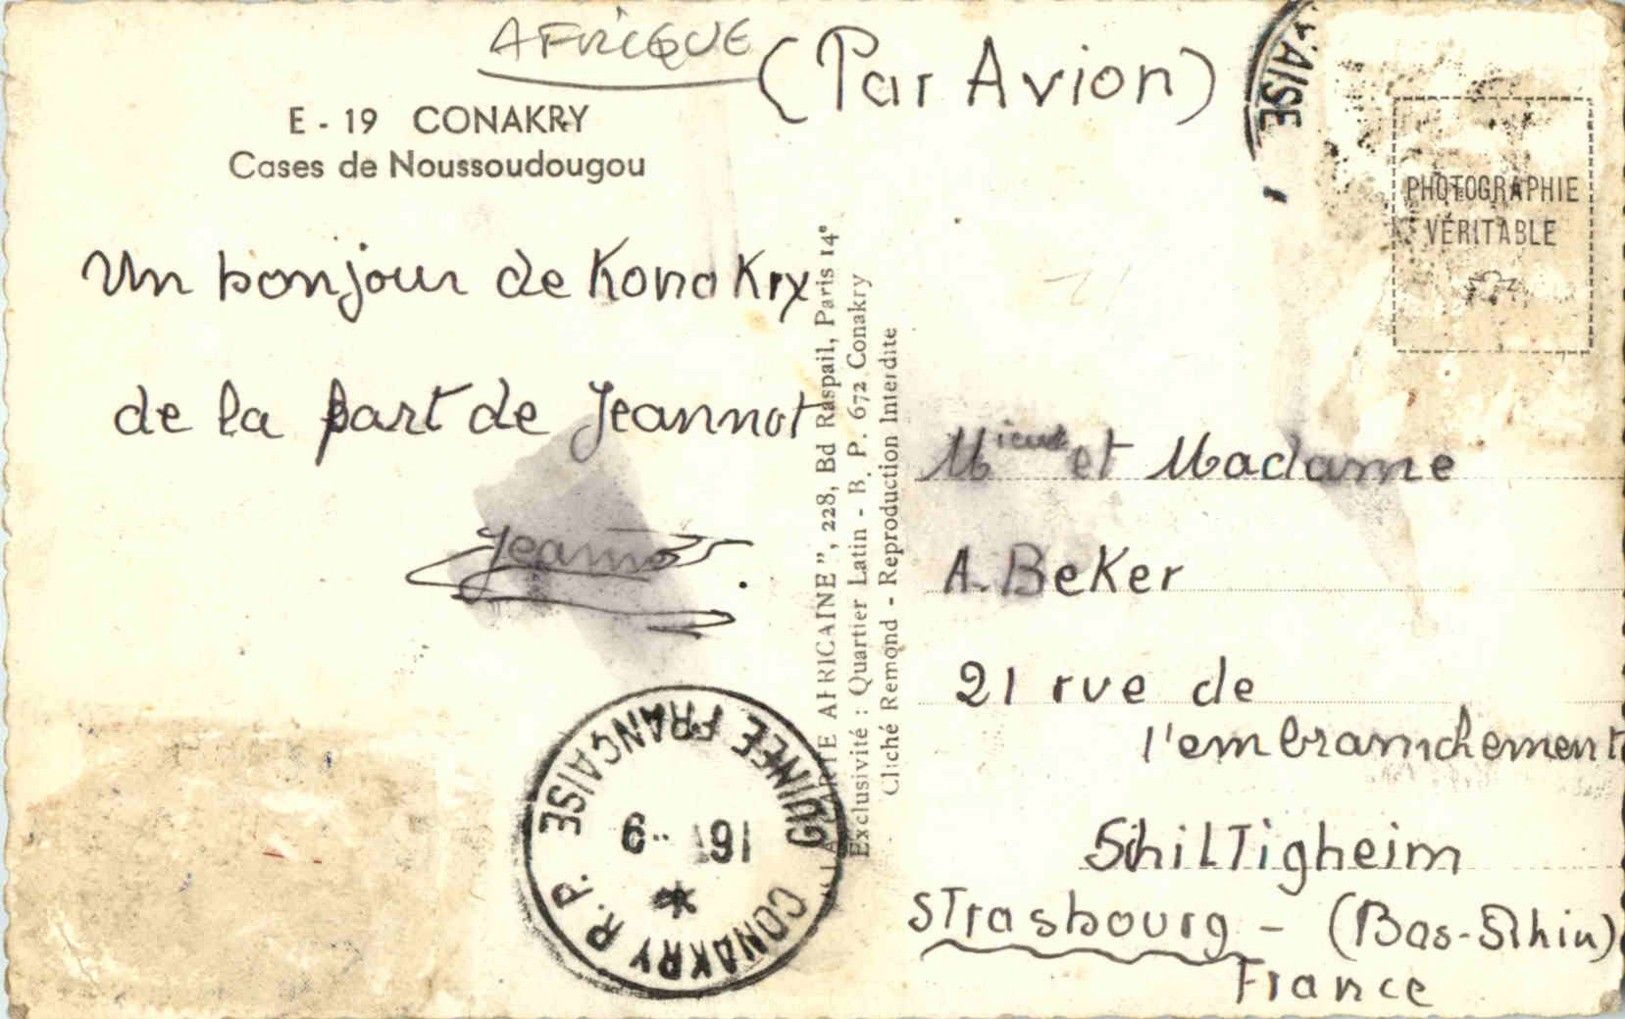 AFRIQUE
(Par Avion)
E - 19 CONAKRY
Cases de Noussoudougou
Un bonjour de KonaKry
de la part de Jeannot
Jeannot
"LA CARTE AFRICAINE", 228, Bd Raspail, Paris 14e
Exclusivité : Quartier Latin - B. P. 672 Conakry
Cliché Remond - Reproduction Interdite
AISE
PHOTOGRAPHIE
VÉRITABLE
Mieur et Madame
A. BeKer
21 rue de
l'embranchement
SchilTigheim
STrasbourg - (Bas-Rhin)
France
CONAKRY R.P.
GUINÉE FRANÇAISE